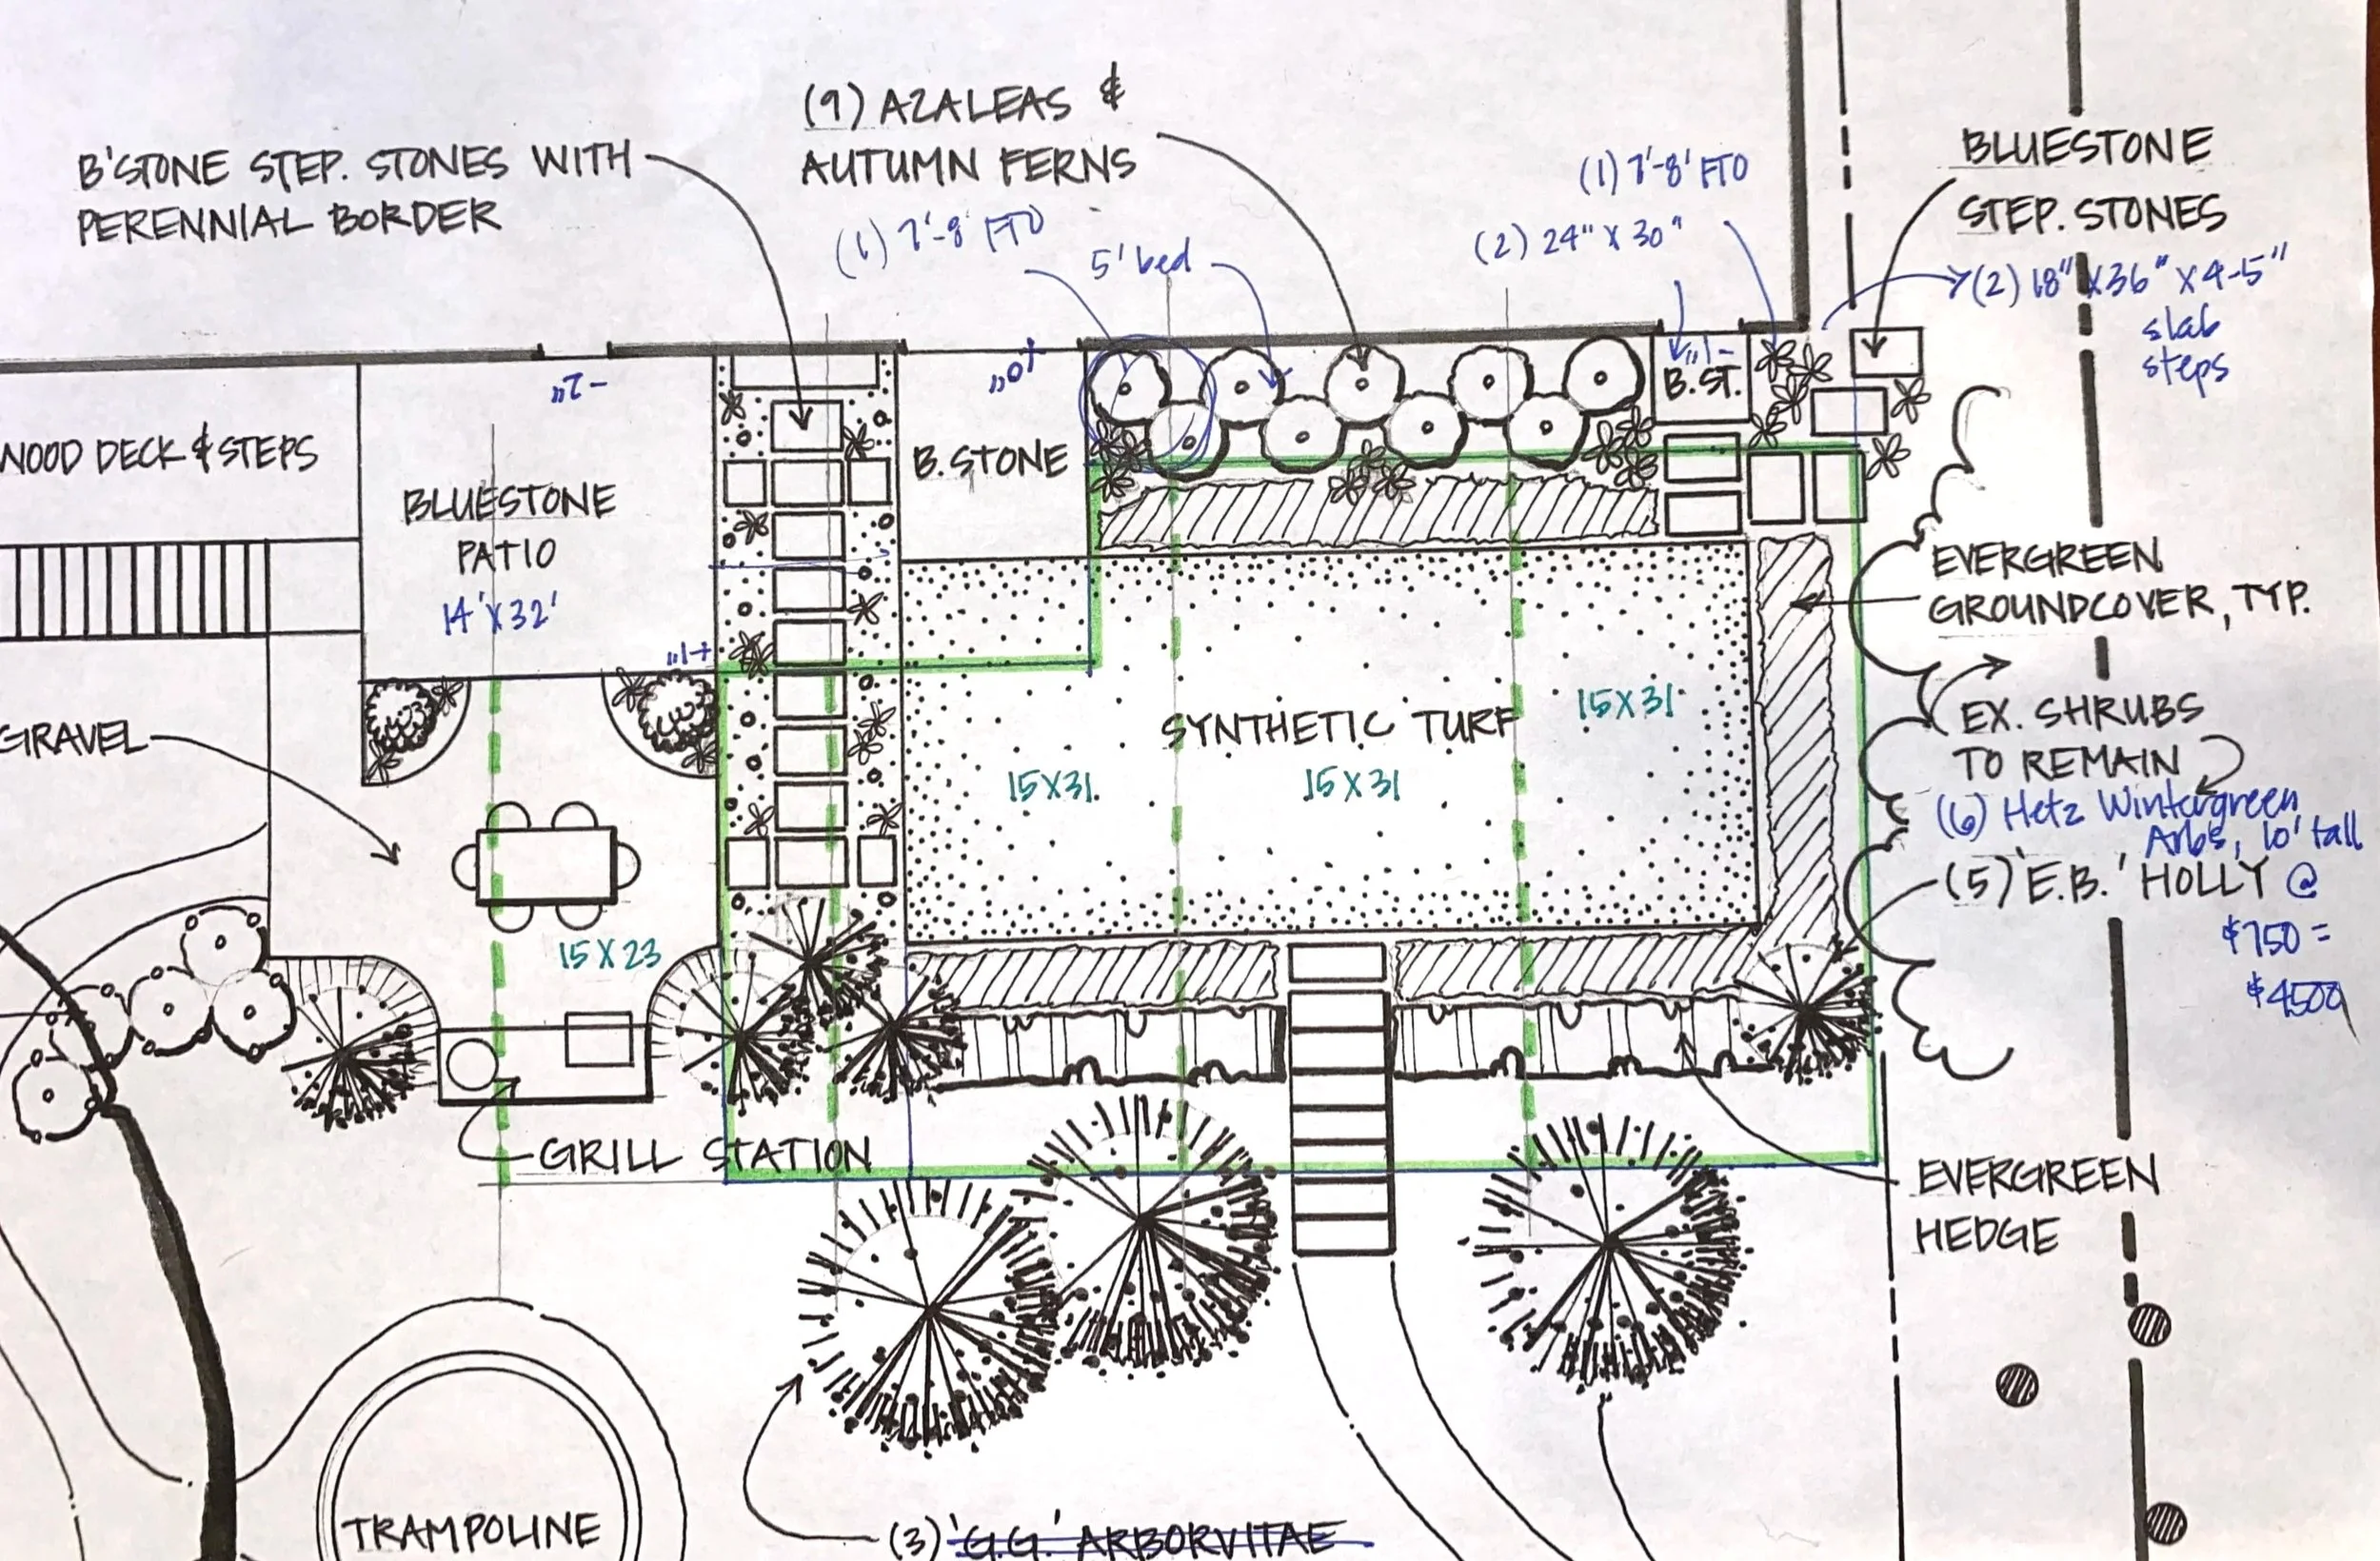 (9) AZALEAS &
AUTUMN FERNS
B'STONE STEP. STONES WITH
PERENNIAL BORDER
(1) 7'-8' FTO
5' bed
(1) 7'-8' FTO
(2) 24" X 30"
BLUESTONE
STEP. STONES
(2) 18" X 36" X 4-5"
slab
steps
-2"
-1"
B. ST.
WOOD DECK & STEPS
B. STONE
BLUESTONE
PATIO
14' X 32'
+1"
EVERGREEN
GROUNDCOVER, TYP.
GRAVEL
SYNTHETIC TURF
15 X 31
15 X 31
15 X 31
EX. SHRUBS
TO REMAIN
(6) Hetz Wintergreen
Arbs, 10' tall
(5) 'E.B.' HOLLY @
$750 =
$4500
15 X 23
GRILL STATION
EVERGREEN
HEDGE
TRAMPOLINE
(3) 'G.G.' ARBORVITAE